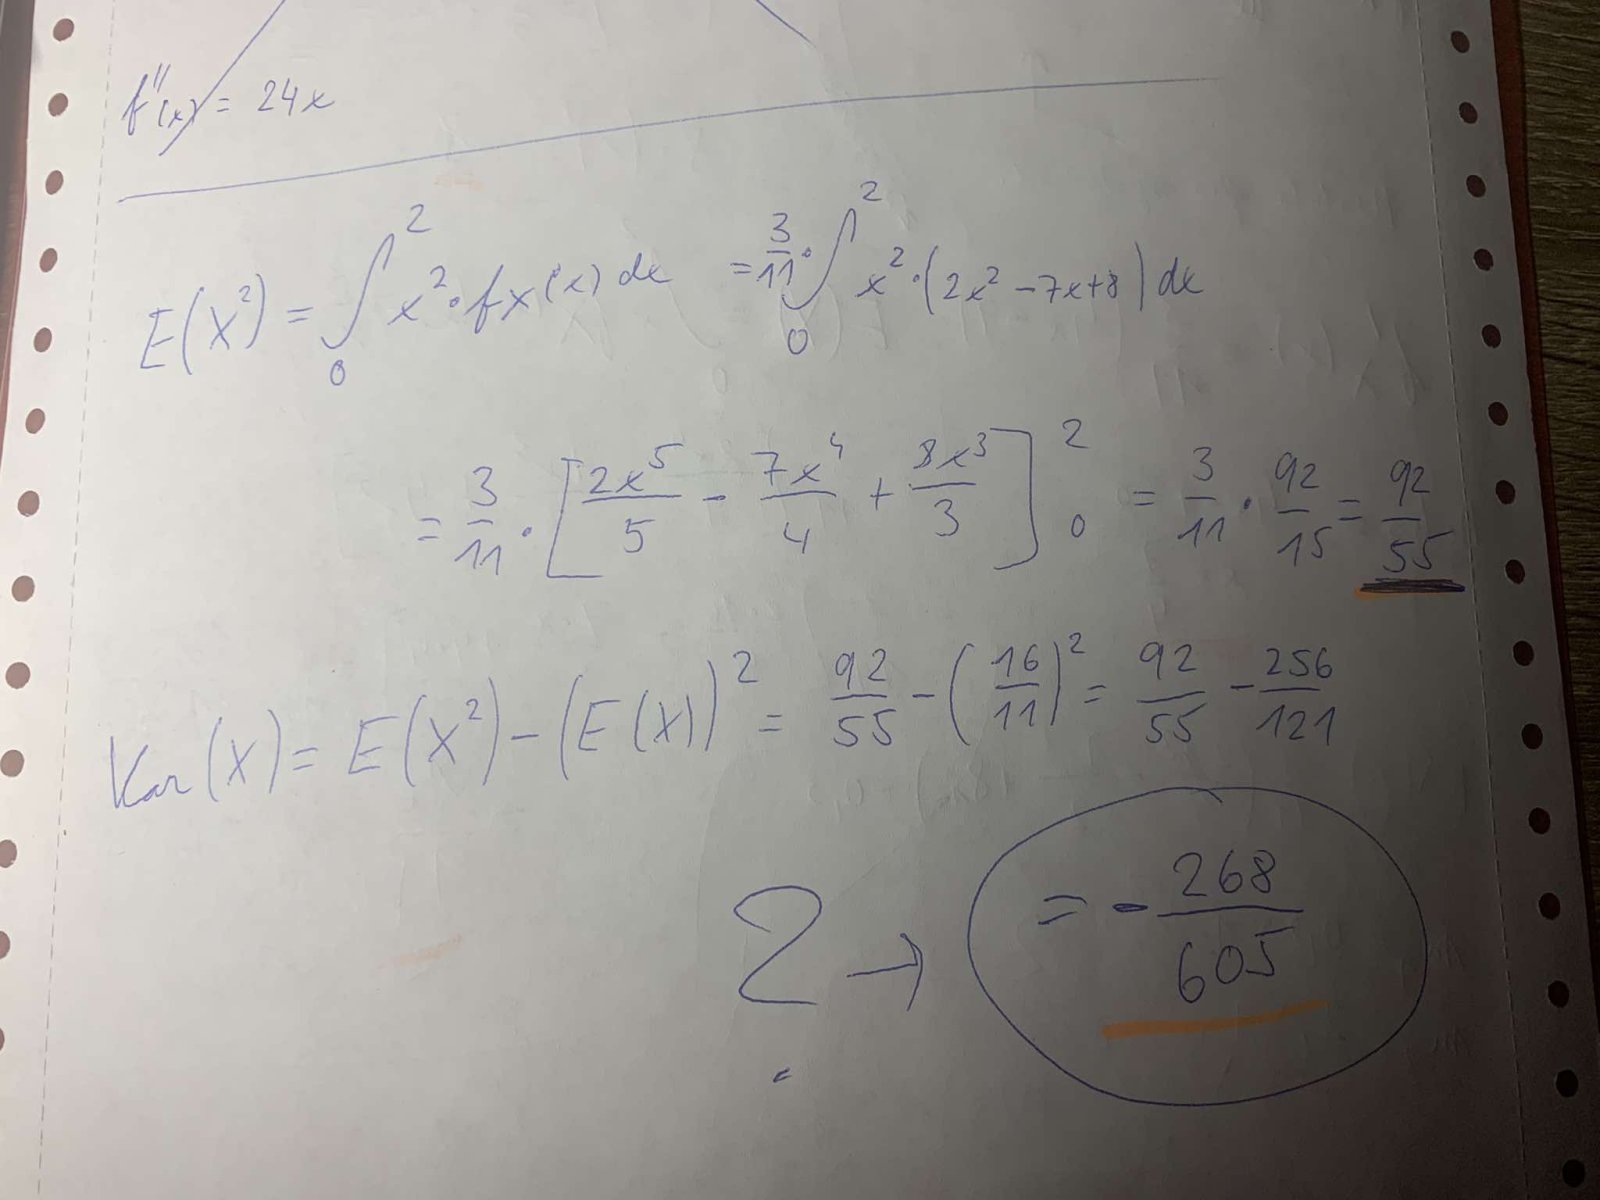 f''(x) = 24x
E(X²) = ∫₀² x²·fx(x) dx = 3/11 · ∫₀² x²·(2x² – 7x+8) dx
= 3/11 · [2x⁵/5 – 7x⁴/4 + 8x³/3]₀² = 3/11 · 92/15 = 92/55
Var(X) = E(X²) – (E(X))² = 92/55 – (16/11)² = 92/55 – 256/121
? → = – 268/605